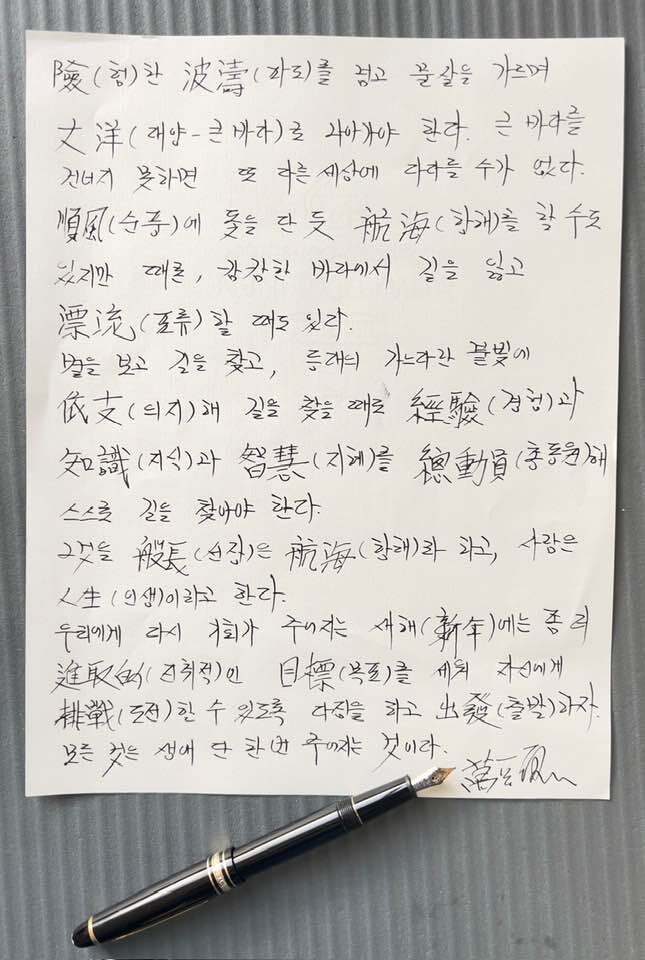 險(험)한 波濤(파도)를 넘고 물살을 가르며
大洋(대양-큰바다)로 나아가야 한다. 큰 바다를
건너지 못하면 또 다른세상에 다다를 수가 없다.
順風(순풍)에 돛을 단 듯 航海(항해)를 할 수도
있지만 때론, 캄캄한 바다에서 길을 잃고
漂流(표류)할 때도 있다.
별을 보고 길을 찾고, 등대의 가느다란 불빛에
依支(의지)해 길을 찾을 때로 經驗(경험)과
知識(지식)과 智慧(지혜)를 總動員(총동원)해
스스로 길을 찾아야 한다.
그것을 船長(선장)은 航海(항해)라 하고, 사람은
人生(인생)이라고 한다.
우리에게 다시 기회가 주어지는 새해(新年)에는 좀 더
進取的(진취적)인 目標(목표)를 세워 자신에게
挑戰(도전)할 수 있도록 다짐을 하고 出發(출발)하자.
모든 것은 생에 단 한번 주어지는 것이다.